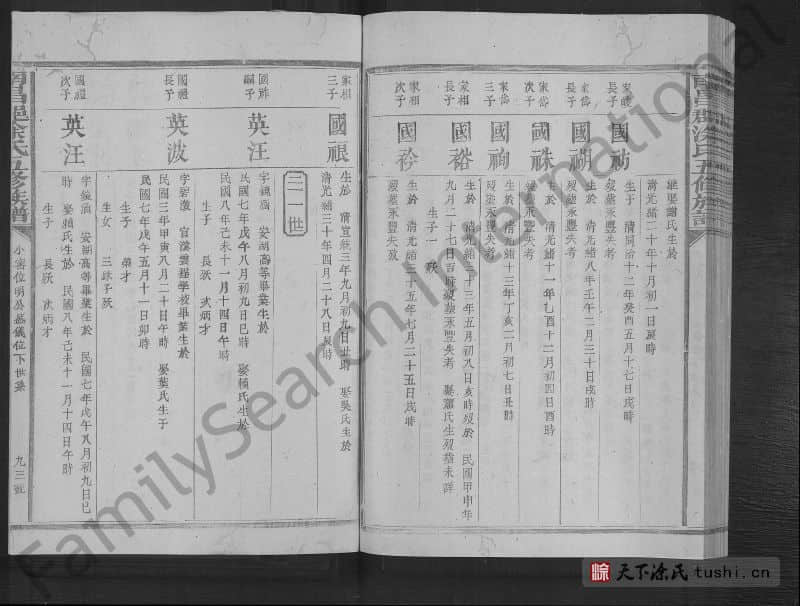 南昌郡涂氏五修族譜
繼娶謝氏生於
清光緒二十年十月初一日辰時
家
長子
國礽
生于 清同治十二年癸酉五月十七日戌時
歿葬永豐失考
家岱
次子
國祠
生於 清光緒八年壬午二月三十日戌時
歿葬永豐失考
家岱
次子
國祩
生於 清光緒十一年乙酉十二月初四日酉時
歿葬永豐失考
家岱
三子
國祹
生於 清光緒十三年丁亥二月初七日丑時
歿葬永豐失考
家相
長子
國裕
生於 清光緒十三年五月初八日亥時歿於 民國甲申年
九月二十七日吉時歿葬永豐失考 娶蕭氏生歿葬未詳
生子一
家相
次子
國衿
生於 清光緒三十五年七月二十五日戌時
歿葬永豐失考
家相
三子
國祳
生於 清宣統三年九月初九日丑時 娶吳氏生於
清光緒三十年四月二十八日辰時
三一世
國
嗣子
英汪
字 安湖高等畢業生於
民國七年戊午八月初九日巳時 娶賴氏生於
民國八年己未十一月十四日午時
生子 長跃 次炳才
國禮
長子
英波
字 官溪 學校畢業生於
民國三年甲寅八月二十日午時 娶葉氏生于
民國七年戊午五月十一日卯時
生子 榮才
生女 三
國禮
次子
英汪
字 安湖高等畢業生於 民國七年戊午八月初九日巳
時 娶賴氏生於 民國八年己未十一月十四日午時
生子 長跃 次炳才
南昌郡涂氏五修族譜
小 位明公 位下世系
九三號
FamilySearch International
天下涂氏
tushi.cn